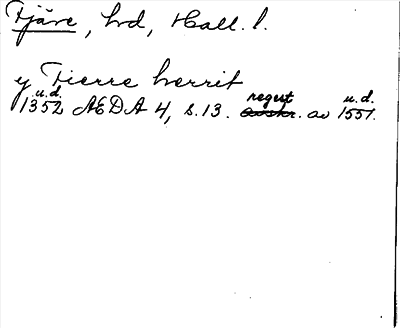 Fjäre, hd, Hall. l.
y Fierre herrit
u.d. regest u.d.
1352 AEDA 4, s. 13. avskr. av 1551.